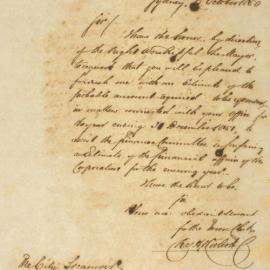 Sydney, October 1850
Sir,
I have the honor, by direction
of the Right Worshipful The Mayor,
to request that you will be pleased to
furnish me with an Estimate of the
probable amount required to be expended
in matters connected with your office for
the year ending 31 December 1851, to
assist the Finance Committee in framing
an Estimate of the Financial affairs of the
Corporation for the ensuing year.
I have the honor to be,
Sir
Your most obedient servant
for the Town Clerk
The City